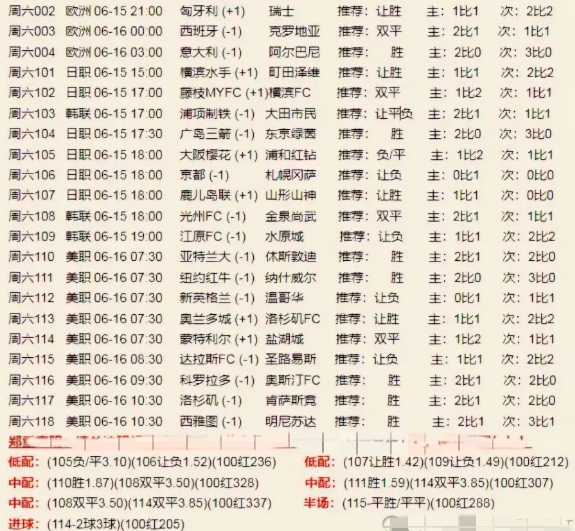 周六002 欧洲 06-15 21:00 匈牙利 (+1) 瑞士 推荐：让胜 主：1比1 次：2比2
周六003 欧洲 06-16 00:00 西班牙 (-1) 克罗地亚 推荐：双平 主：2比1 次：1比1
周六004 欧洲 06-16 03:00 意大利 (-1) 阿尔巴尼 推荐：胜 主：2比0 次：3比0
周六101 日职 06-15 15:00 横滨水手 (+1) 町田泽维 推荐：让胜 主：1比1 次：2比2
周六102 日职 06-15 17:00 藤枝MYFC (+1) 横滨FC 推荐：双平 主：1比2 次：1比1
周六103 韩联 06-15 17:00 浦项制铁 (-1) 大田市民 推荐：让平负 主：2比1 次：1比1
周六104 日职 06-15 17:30 广岛三箭 (-1) 东京绿茵 推荐：胜 主：2比0 次：3比0
周六105 日职 06-15 18:00 大阪樱花 (+1) 浦和红钻 推荐：负/平 主：1比2 次：1比1
周六106 日职 06-15 18:00 京都 (-1) 札幌冈萨 推荐：让负 主：0比1 次：0比0
周六107 日职 06-15 18:00 鹿儿岛联 (+1) 山形山神 推荐：让胜 主：1比1 次：0比0
周六108 韩联 06-15 18:00 光州FC (-1) 金泉尚武 推荐：双平 主：2比1 次：1比1
周六109 韩联 06-15 19:00 江原FC (-1) 水原城 推荐：让负 主：1比1 次：2比2
周六110 美职 06-16 07:30 亚特兰大 (-1) 休斯敦迪 推荐：胜 主：2比1 次：2比0
周六111 美职 06-16 07:30 纽约红牛 (-1) 纳什威尔 推荐：胜 主：2比0 次：3比0
周六112 美职 06-16 07:30 新英格兰 (-1) 温哥华 推荐：让负 主：0比1 次：1比1
周六113 美职 06-16 07:30 奥兰多城 (+1) 洛杉矶FC 推荐：让胜 主：1比1 次：2比2
周六114 美职 06-16 07:30 蒙特利尔 (+1) 盐湖城 推荐：双平 主：1比2 次：1比1
周六115 美职 06-16 08:30 达拉斯FC (-1) 圣路易斯 推荐：让负 主：1比1 次：2比2
周六116 美职 06-16 09:30 科罗拉多 (-1) 奥斯汀FC 推荐：胜 主：2比1 次：2比0
周六117 美职 06-16 10:30 洛杉矶 (-1) 肯萨斯竟 推荐：胜 主：2比1 次：2比0
周六118 美职 06-16 10:30 西雅图 (-1) 明尼苏达 推荐：胜 主：2比1 次：3比1
低配：(105负/平3.10)(106让负1.52)(100红236) 低配：(107让胜1.42)(109让负1.49)(100红212)
中配：(110胜1.87)(108双平3.50)(100红328) 中配：(111胜1.59)(114双平3.85)(100红307)
中配：(108双平3.50)(114双平3.85)(100红337) 半场：(115-平胜/平平)(100红288)
进球：(114-2球3球)(100红205)